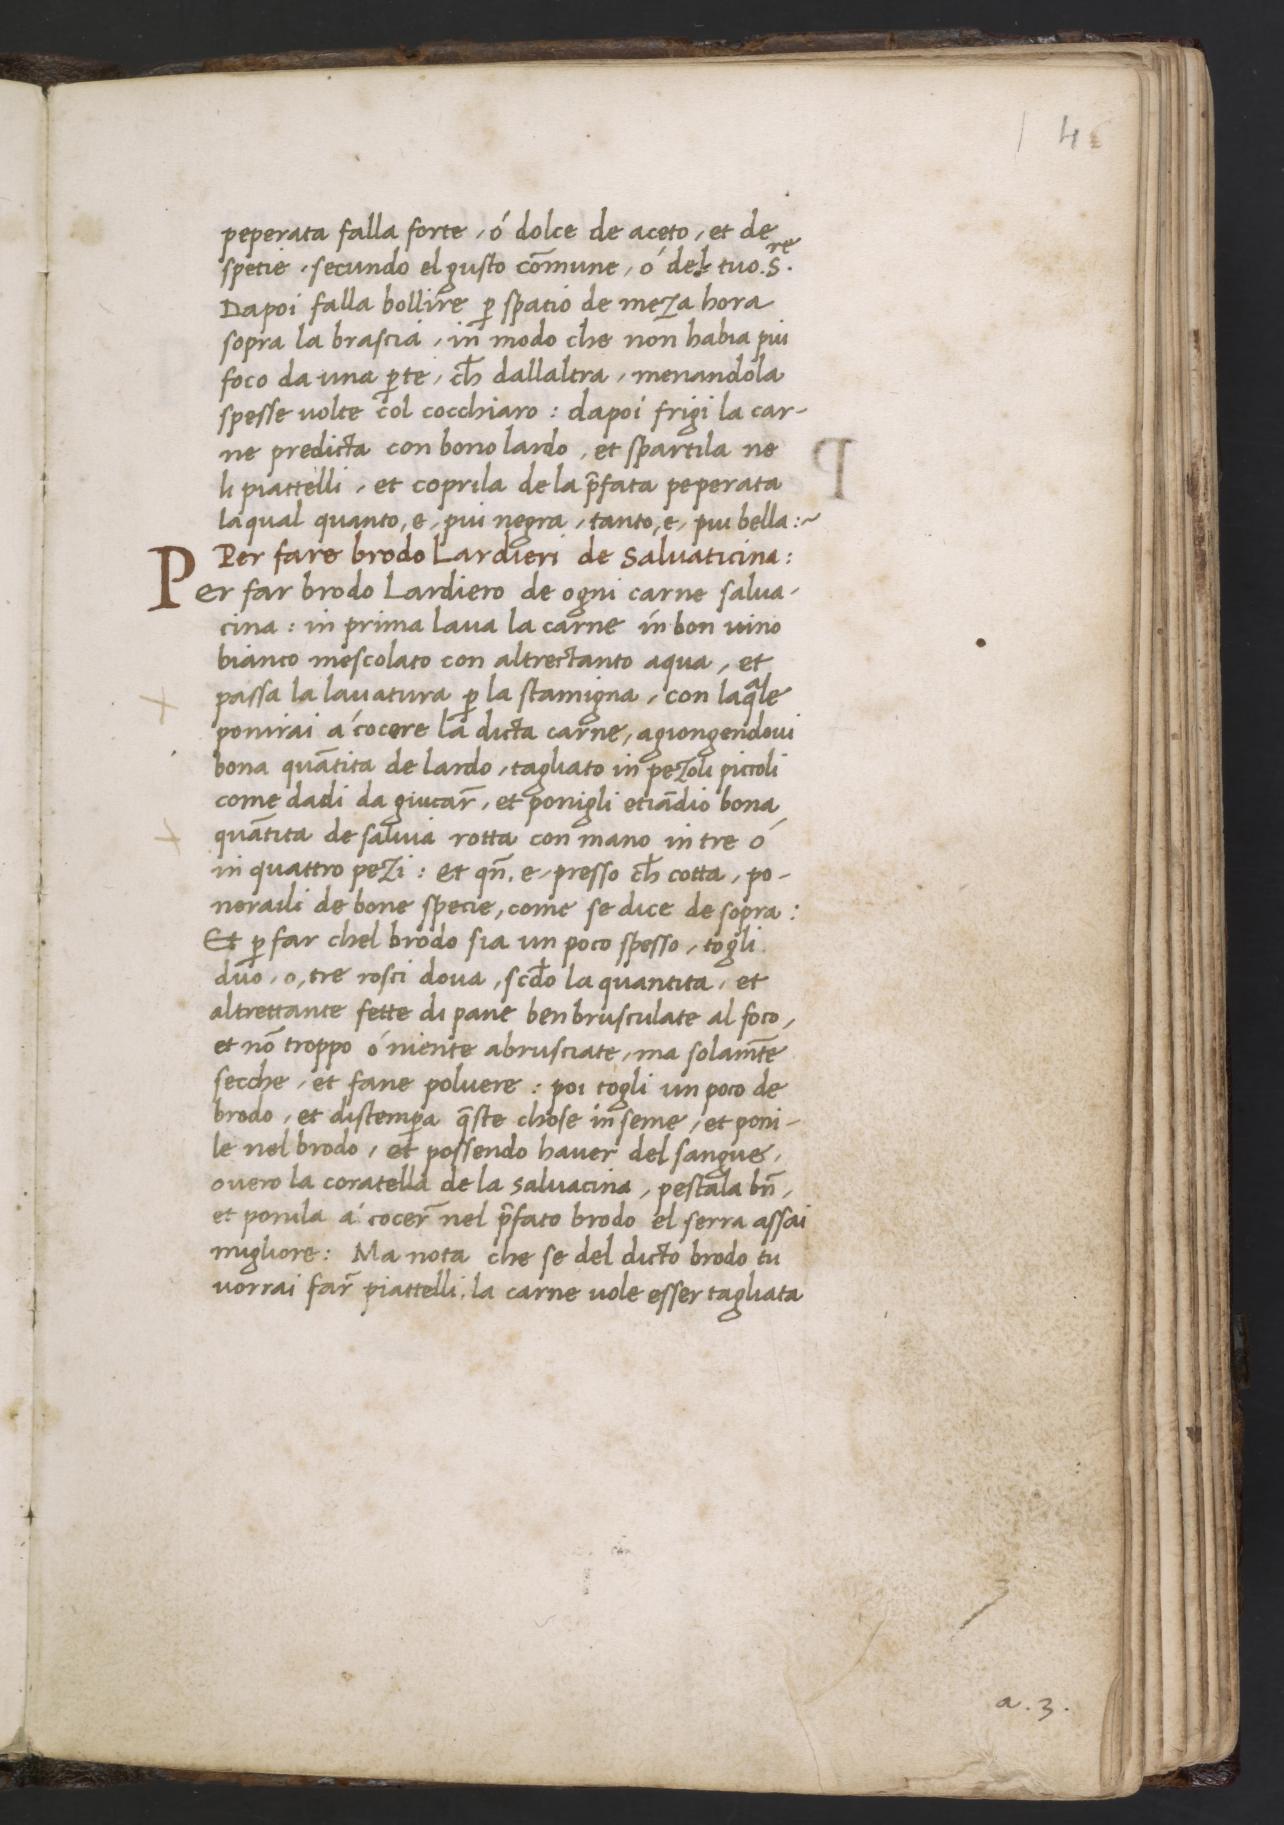 4
peperata falla forte, ó dolce de aceto, et de
spetie, secundo el gusto cõmune, ó del tuo .S.re
Dapoi falla bollire p̱ spatio de meza hora
sopra la brascia, in modo che non habia piu
foco da una p̱te, ch̄ dallaltra, menandola
spesse uolte col cocchiaro : dapoi frigi la car-
ne predicta con bono lardo, et spartila ne
li piattelli, et coprila de la p̄fata peperata
laqual quanto, e, piu negra, tanto, e, piu bella :~
Per fare brodo Lardieri de Saluaticina :
Per far brodo Lardiero de ogni carne salua-
cina : in prima laua la carne in bon uino
bianco mescolato con altrectanto aqua, et
passa la lauatura p̱ la stamigna, con laqᵃle
ponirai á cocere la dicta carne, agiongendoui
bona quãtita de lardo, tagliato in pezoli piccoli
come dadi da giucar̃, et ponigli etiãdio bona
quãtita de saluia rotta con mano in tre ó
in quattro pezi : Et qñ. e, presso ch̄ cotta, po-
neraili de bone specie, come se dice de sopra :
Et p̱ far chel brodo sia un poco spesso, togli
duo, o, tre rosci doua, scd̄o la quantita, et
altrettante fette di pane ben brusculate al foco,
et nõ troppo ó niente abrusciate, ma solam̃te
secche, et fane poluere : poi togli un poco de
brodo, et distemp̱a q̄ste chose inseme, et poni-
le nel brodo, et possendo hauer del sangue,
ouero la coratella de la saluacina, pestala bñ,
et ponila á cocer̃ nel p̄fato brodo el serra assai
migliore : Ma nota che se del dicto brodo tu
uorrai far̃ piattelli, la carne uole esser tagliata
a . 3 .